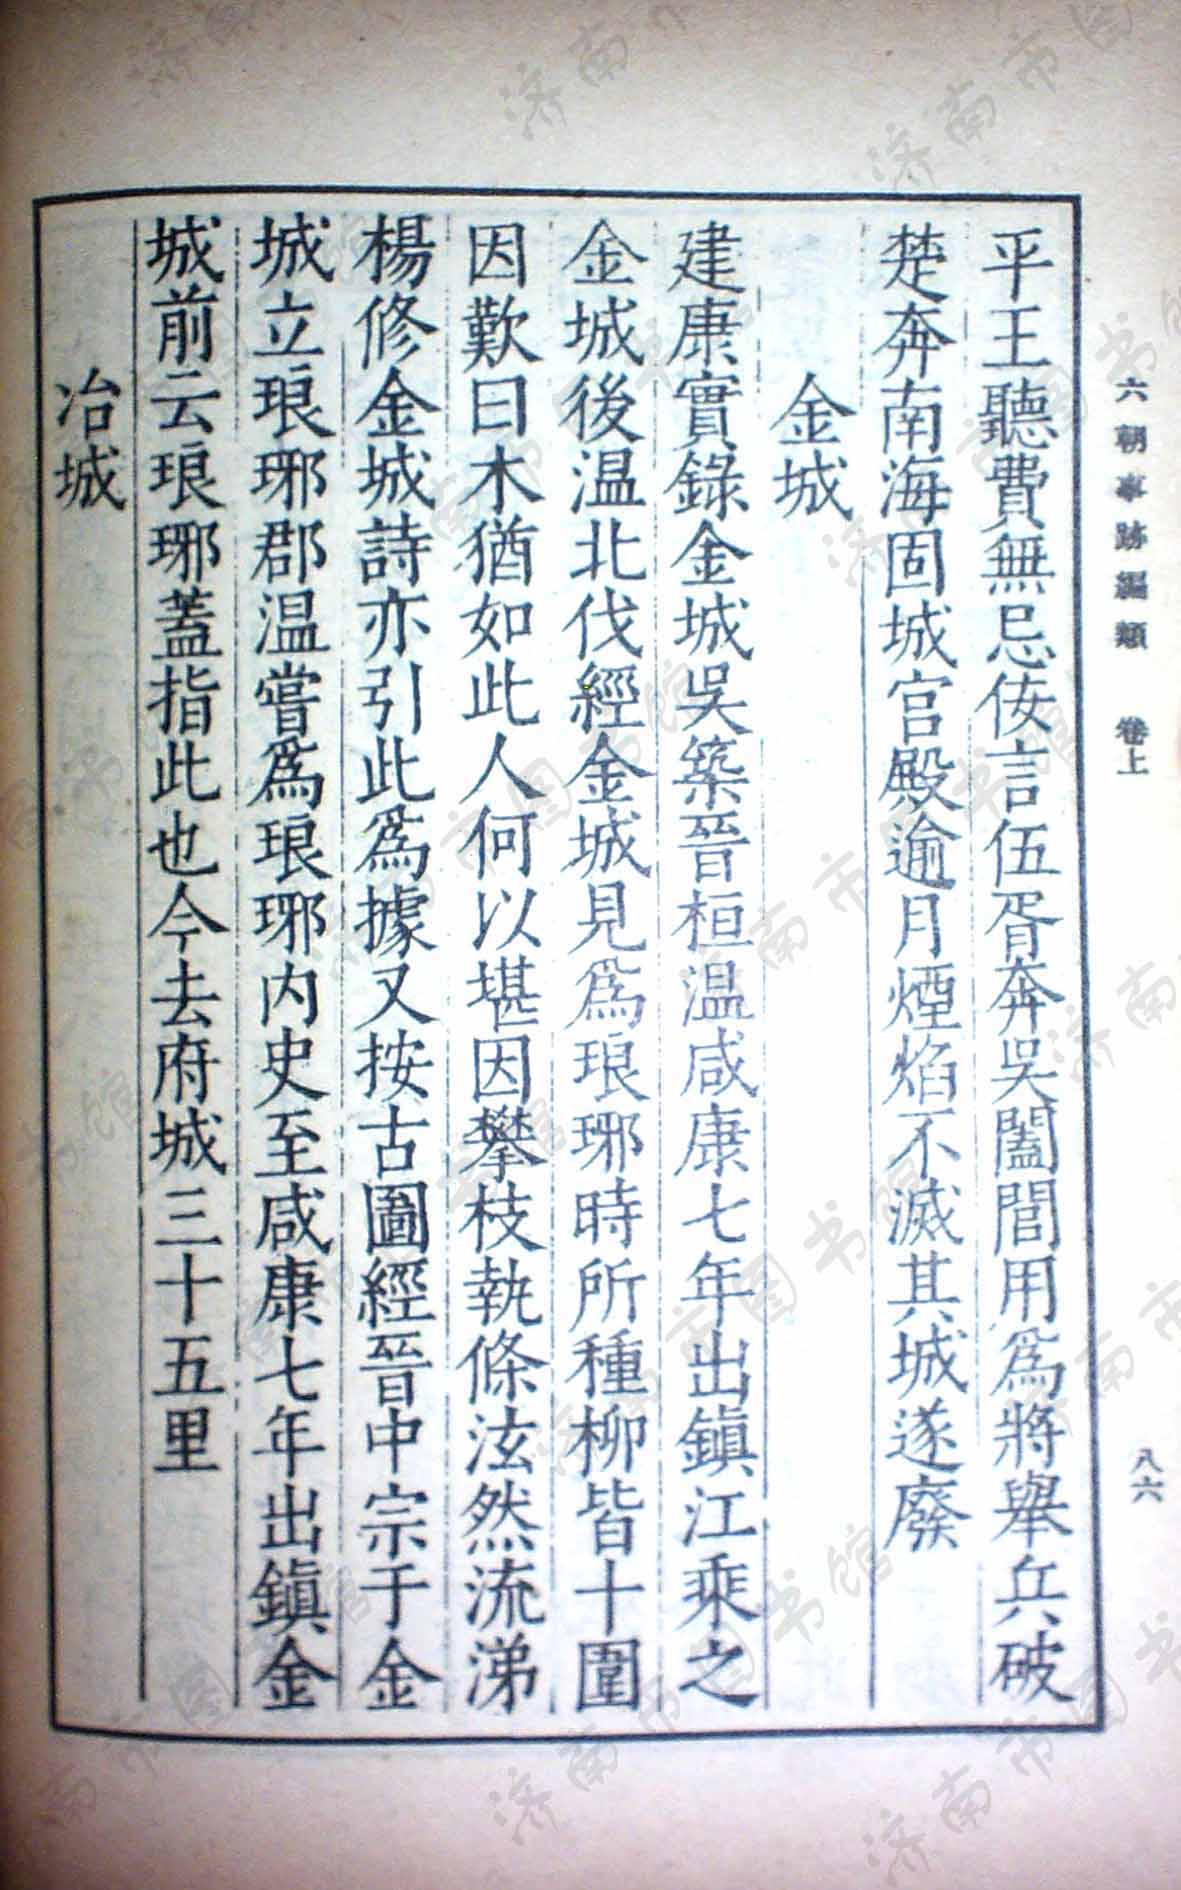 六朝事跡編類　卷上
八六
平王聽費無忌佞言伍胥奔吳闔閭用爲將舉兵破
楚奔南海固城宮殿逾月煙焰不滅其城遂廢
金城
建康實錄金城吳築晉桓温咸康七年出鎮江乘之
金城後温北伐經金城見爲琅琊時所種柳皆十圍
因歎曰木猶如此人何以堪因攀枝執條泫然流涕
楊修金城詩亦引此爲據又按古圖經晉中宗于金
城立琅琊郡温嘗爲琅琊内史至咸康七年出鎮金
城前云琅琊蓋指此也今去府城三十五里
冶城
济南市图书馆